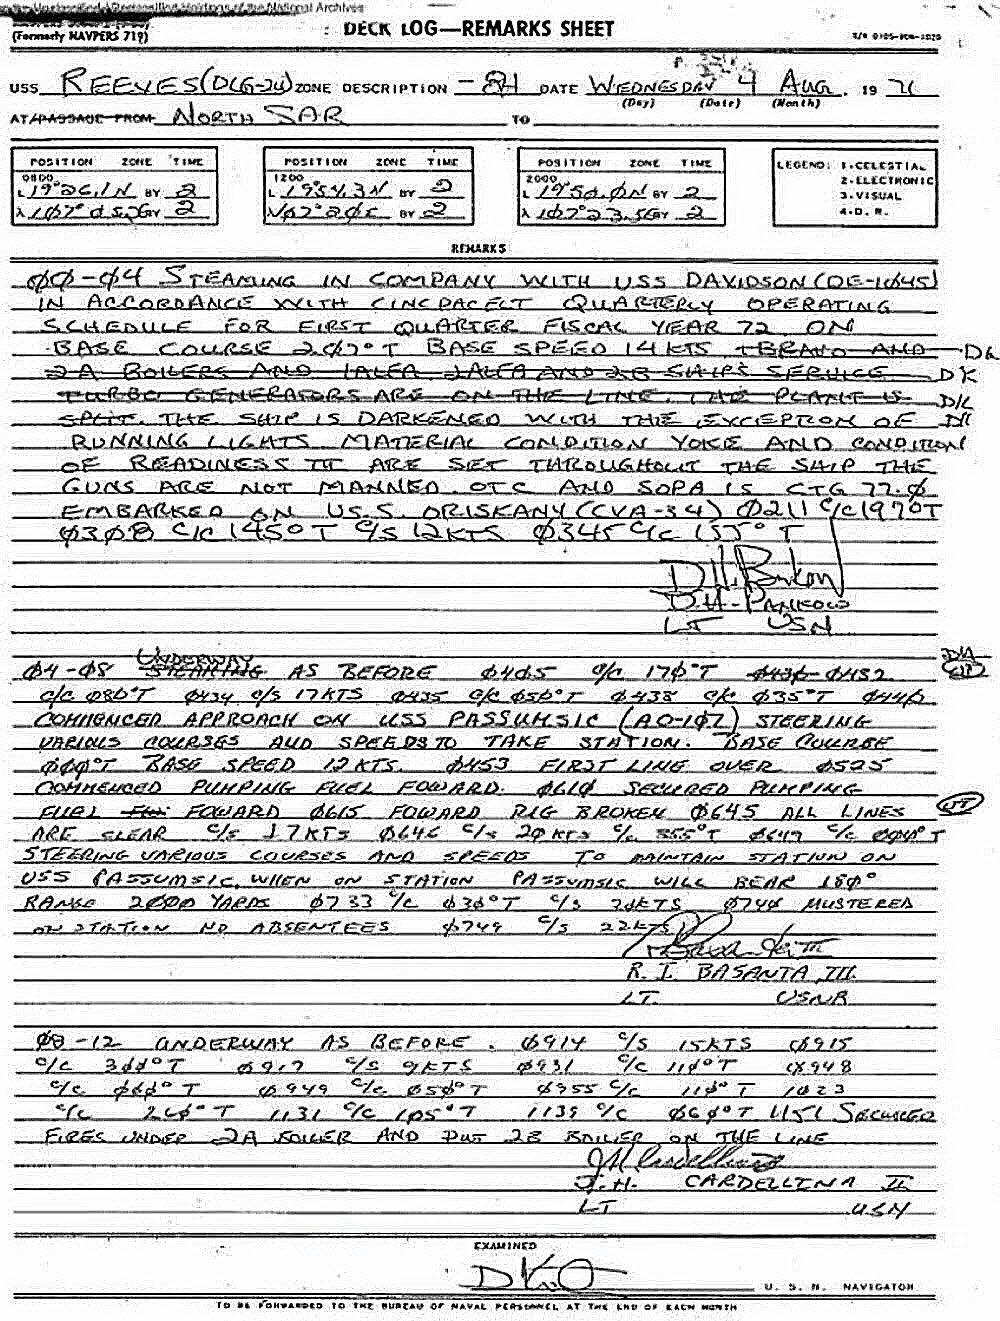 the Unclassified/Declassified Holdings of the National Archives
(Formerly NAVPERS 719)
DECK LOG—REMARKS SHEET
USS REEVES (DLG-24) ZONE DESCRIPTION -8H DATE WEDNESDAY 4 AUG. 19 71
(Day) (Date) (Month)
AT/PASSAGE FROM NORTH SAR TO
POSITION ZONE TIME
0800
L 19°26.1N BY 2
λ 107°05.2E BY 2
POSITION ZONE TIME
1200
L 19°54.3N BY 2
λ 107°20E BY 2
POSITION ZONE TIME
2000
L 19°50.0N BY 2
λ 107°23.5E BY 2
LEGEND: 1-CELESTIAL
2-ELECTRONIC
3-VISUAL
4-D. R.
REMARKS
00-04 STEAMING IN COMPANY WITH USS DAVIDSON (DE-1045)
IN ACCORDANCE WITH CINCPACFLT QUARTERLY OPERATING
SCHEDULE FOR FIRST QUARTER FISCAL YEAR 72 ON
BASE COURSE 207°T BASE SPEED 14 KTS 1 BRAVO AND DK
2A BOILERS AND 1ALFA 2ALFA AND 2B SHIPS SERVICE DK
TURBO GENERATORS ARE ON THE LINE. THE PLANT IS DK
SPLIT. THE SHIP IS DARKENED WITH THE EXCEPTION OF DK
RUNNING LIGHTS MATERIAL CONDITION YOKE AND CONDITION
OF READINESS III ARE SET THROUGHOUT THE SHIP THE
GUNS ARE NOT MANNED. OTC AND SOPA IS CTG 77.0
EMBARKED ON U.S.S. ORISKANY (CVA-34) 0211 C/C 197°T
0308 C/C 145°T C/S 12KTS 0345 C/C 155°T
D.H. PANKOW
LT USN
04-08 STEAMING UNDERWAY AS BEFORE 0405 C/C 170°T 0430 0432
C/C 080°T 0434 C/S 17KTS 0435 C/C 050°T 0438 C/C 035°T 0440
COMMENCED APPROACH ON USS PASSUMSIC (AO-107) STEERING
VARIOUS COURSES AND SPEEDS TO TAKE STATION. BASE COURSE
000°T BASE SPEED 12 KTS. 0453 FIRST LINE OVER 0525
COMMENCED PUMPING FUEL FOWARD. 0610 SECURED PUMPING
FUEL FOWARD 0615 FOWARD RIG BROKEN 0645 ALL LINES
ARE CLEAR C/S 17KTS 0646 C/S 20KTS C/C 355°T 0647 C/C 004°T
STEERING VARIOUS COURSES AND SPEEDS TO MAINTAIN STATION ON
USS PASSUMSIC. WHEN ON STATION PASSUMSIC WILL BEAR 180°
RANGE 2000 YARDS 0733 C/C 030°T C/S KTS 0744 MUSTERED
ON STATION NO ABSENTEES 0749 C/S 22KTS
R. I. BASANTA III
LT. USNR
08-12 UNDERWAY AS BEFORE. 0914 C/S 15KTS 0915
C/C 300°T 0917 C/S 9KTS 0931 C/C 110°T 0948
C/C 060°T 0949 C/C 050°T 0955 C/C 110°T 1023
C/C 260°T 1131 C/C 105°T 1139 C/C 060°T 1151 SECURED
FIRES UNDER 2A BOILER AND PUT 2B BOILER ON THE LINE
J.H. CARDELLINA II
LT USN
EXAMINED
U. S. N. NAVIGATOR
TO BE FORWARDED TO THE BUREAU OF NAVAL PERSONNEL AT THE END OF EACH MONTH